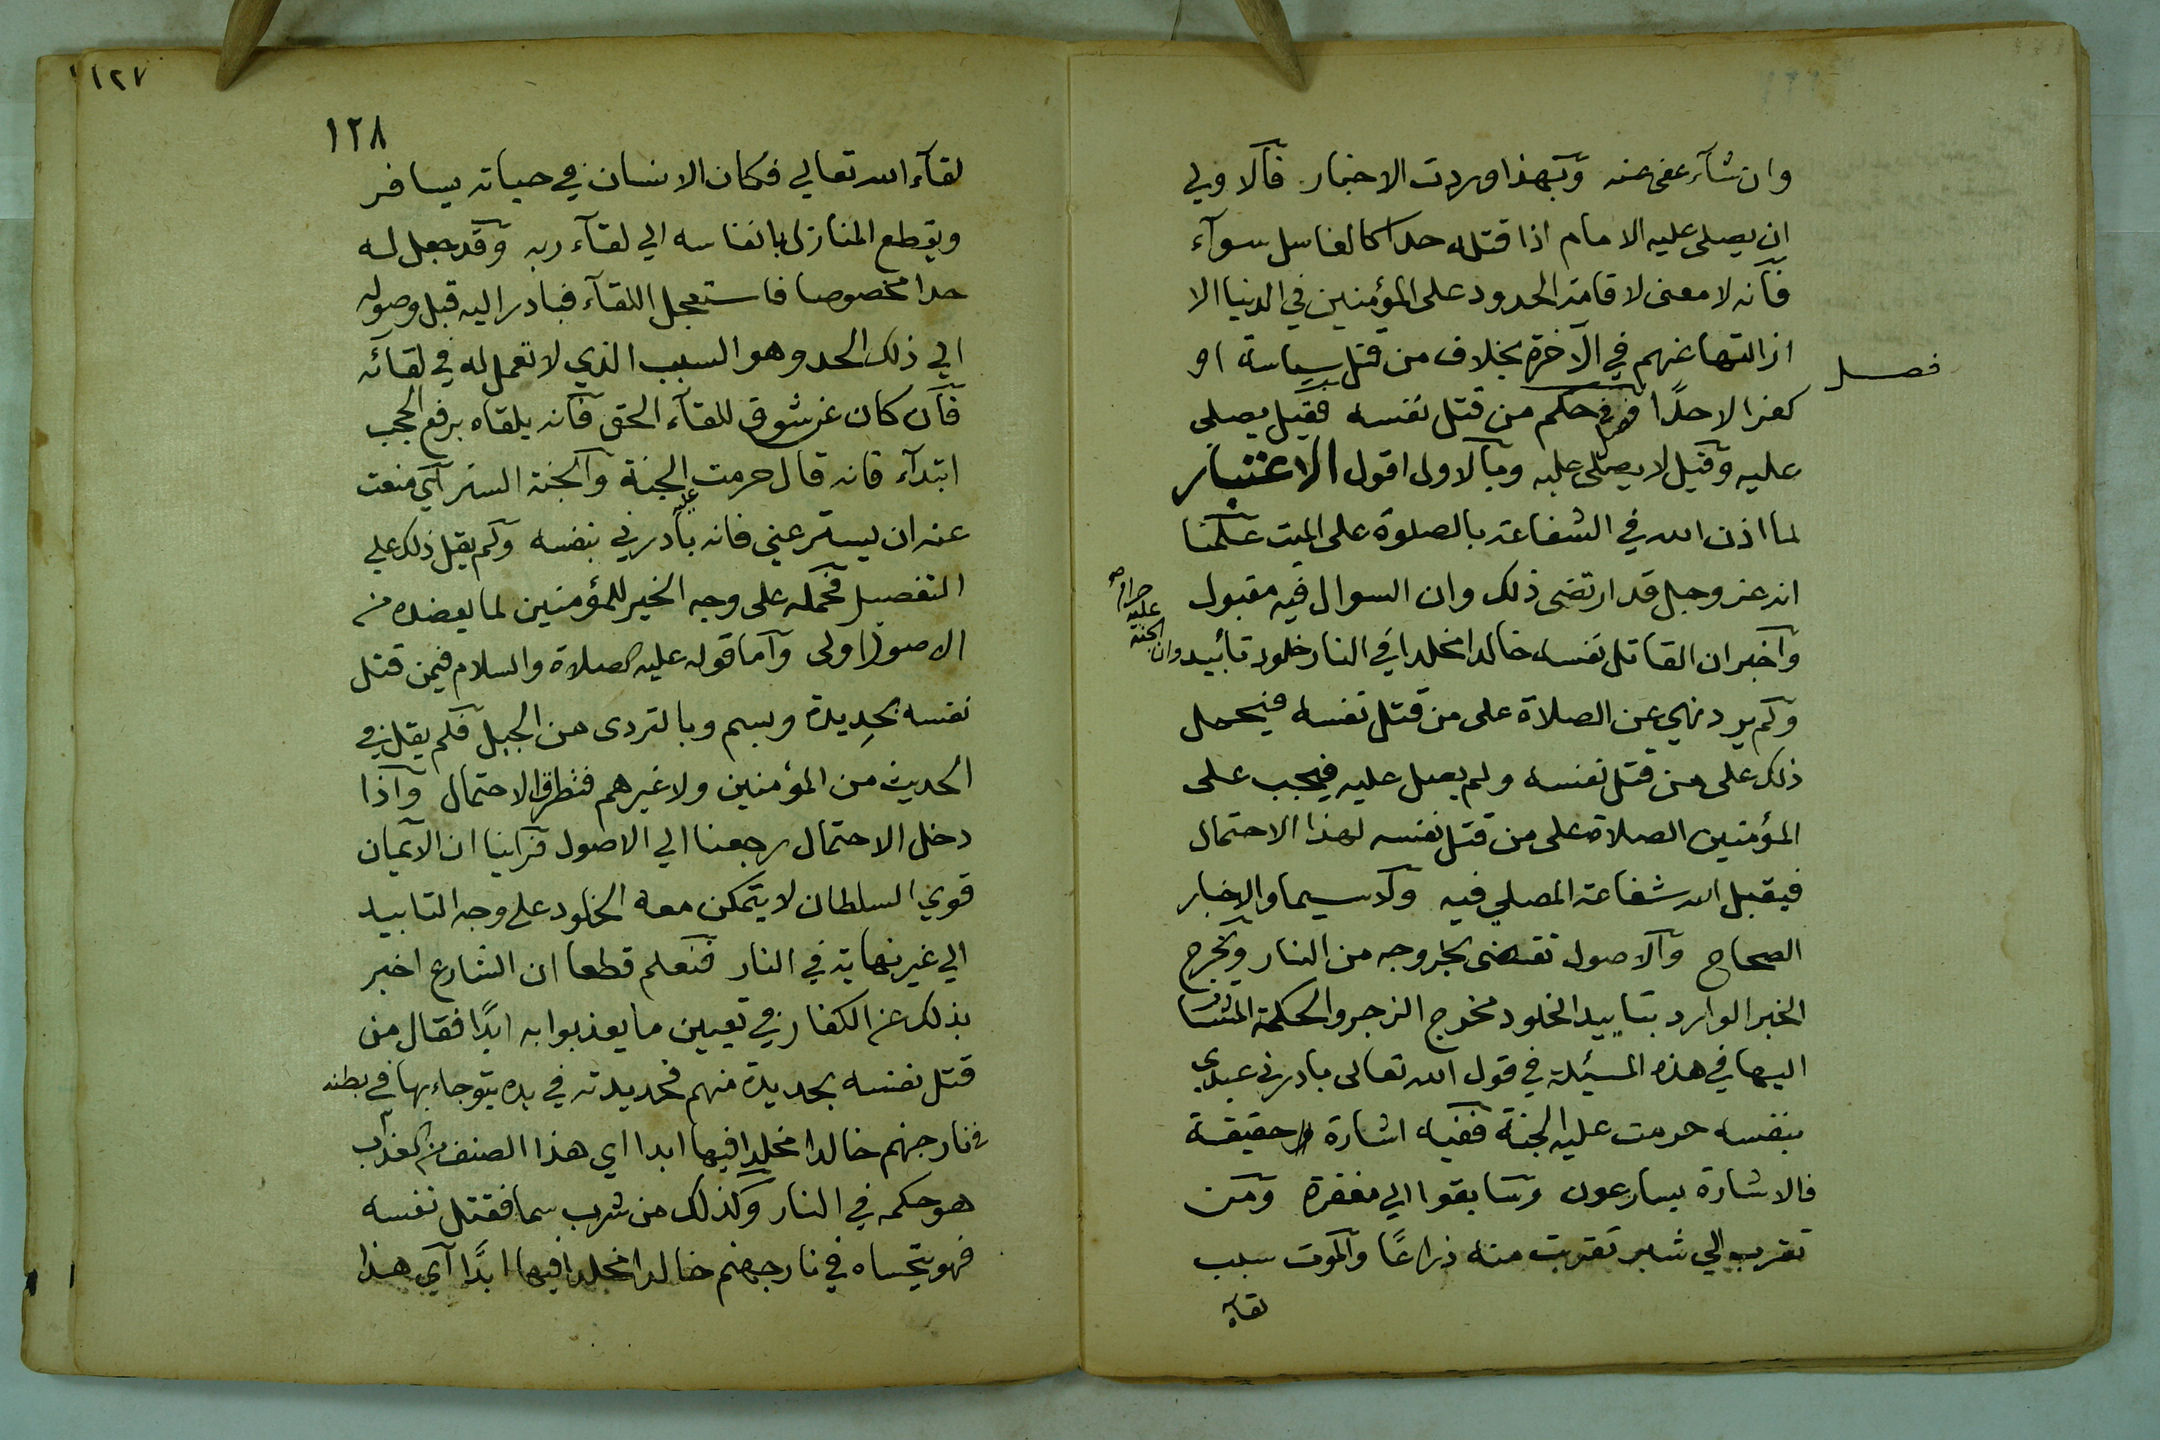 وان شآء عفى عنه وبهذا وردت الاخبار فالاولي
ان يصلى عليه الامام اذا قتله حدا كالغاسل سوآء
فانه لا معنى لاقامة الحدود على المؤمنين في الدنيا الا
ازالتها عنهم في الآخرة بخلاف من قتل سياسة او
فصل
كفرا لا حدًا في حكم من قتل نفسه فقيل يصلى
عليه وقيل لا يصلى عليه وبالاول اقول الاعتبار
لما اذن الله في الشفاعة بالصلوة على الميت علمنا
انه عز وجل قد ارتضى ذلك وان السوال فيه مقبول
واخبر ان القاتل نفسه خالدا مخلدا في النار خلود تأبيد وان
الجنة
عليه
حرام
ولم يرد نهي عن الصلاة على من قتل نفسه فيحمل
ذلك على من قتل نفسه ولم يصل عليه فيجب على
المؤمنين الصلاة على من قتل نفسه لهذا الاحتمال
فيقبل الله شفاعة المصلي فيه ولا سيما والاخبار
الصحاح والاصول تقتضى بخروجه من النار ويخرج
الخبر الوارد بتابيد الخلود مخرج الزجر والحكمة المشار
اليها في هذه المسئلة في قول الله تعالى بادرني عبدي
بنفسه حرمت عليه الجنة ففيه اشارة حقيقة
فالاشارة يسارعون وسابقوا الي مغفرة ومن
تقرب الي شبر تقربت منه ذراعًا والموت سبب
لقاء
١٢٧
١٢٨
لقآء الله تعالي فكان الانسان في حياته يسافر
ويقطع المنازل بانفاسه الي لقآء ربه وقد جعل له
حدا مخصوصا فاستعجل اللقآء فبادر اليه قبل وصوله
الي ذلك الحد وهو السبب الذي لا تعمل له في لقائه
فان كان عن شوق للقآء الحق فانه يلقاه برفع الحجب
ابتدآء فانه قال حرمت عليه الجنة والجنة الستر اي منعت
عنه ان يستر عني فانه بادرني بنفسه ولم يقل ذلك علي
التفصيل فحمله على وجه الخير للمؤمنين لما يعضده من
الاصول اولى واما قوله عليه الصلاة والسلام فيمن قتل
نفسه بحديدة وبسم وبالتردى من الجبل فلم يقل في
الحديث من المؤمنين ولا غيرهم فتطرق الاحتمال واذا
دخل الاحتمال رجعنا الي الاصول فرأينا ان الايمان
قوي السلطان لا يتمكن معه الخلود على وجه التابيد
الي غير نهاية في النار فنعلم قطعا ان الشارع اخبر
بذلك عن الكفار في تعيين ما يعذبوا به ابدًا فقال من
قتل نفسه بحديدة منهم فحديدته في يده يتوجاء بها في بطنه
في نار جهنم خالدا مخلدا فيها ابدا اي هذا الصنف من العذاب
هو حكمه في النار وكذلك من شرب سما فقتل نفسه
فهو يتحساه في نار جهنم خالدا مخلدا فيها ابدًا اي هذا